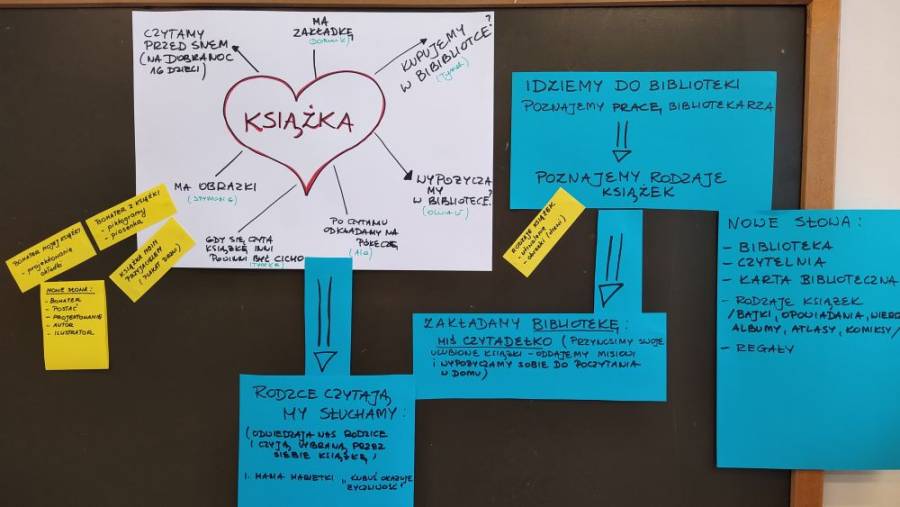 CZYTAMY
PRZED SNEM
(NA DOBRANOC
16 DZIECI)
MA
ZAKŁADKĘ
?
KUPUJEMY
W BIBIBLIOTCE?
(Tymek)
KSIĄŻKA
MA OBRAZKI
GDY SIĘ CZYTA
KSIĄŻKĘ INNI
POWINNI BYĆ CICHO
PO CZYTANIU
ODKŁADAMY NA
PÓŁECZĘ
(ALA)
WYPOŻYCZA
MY ?
W BIBLIOTECE
BOHATER MOJEJ KSIĄŻKI
- projektowanie
okładki
BOHATER Z KSIĄŻKI
- piktogramy
- piosenka
KSIĄŻKA MOIM
PRZYJACIELEM
NOWE SŁOWA:
- BOHATER
- POSTAĆ
- PROJEKTOWANIE
- AUTOR
- ILUSTRATOR
RODZCE CZYTAJĄ,
MY SŁUCHAMY:
(ODWIEDZAJĄ NAS RODZICE
I CZYJĄ, WYBRANĄ PRZEZ
SIEBIE KSIĄŻKĘ)
1. MAMA "KUBUŚ OKAZUJE
ŻYCZLIWOŚĆ"
IDZIEMY DO BIBLIOTEKI
POZNAJEMY PRACĘ BIBLIOTEKARZA
POZNAJEMY RODZAJE
KSIĄŻEK
RODZAJE KSIĄŻEK
ZAKŁADAMY BIBLIOTEKĘ:
MIŚ CZYTADEŁKO (PRZYNOSIMY SWOJE
ULUBIONE KSIĄŻKI - ODDAJEMY MISIOWI
I WYPOŻYCZAMY SOBIE DO POCZYTANIA
W DOMU)
NOWE SŁOWA:
- BIBLIOTEKA
- CZYTELNIA
- KARTA BIBLIOTECZNA
- RODZAJE KSIĄŻEK
/BAJKI, OPOWIADANIA,
ALBUMY, ATLASY, KOMIKSY/
- REGAŁY